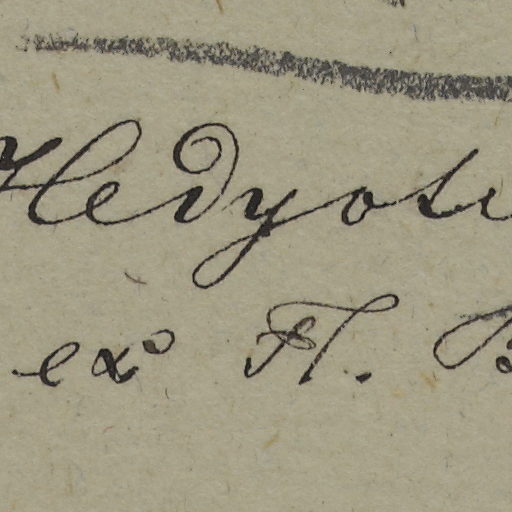 Hedyoti
ex H. B